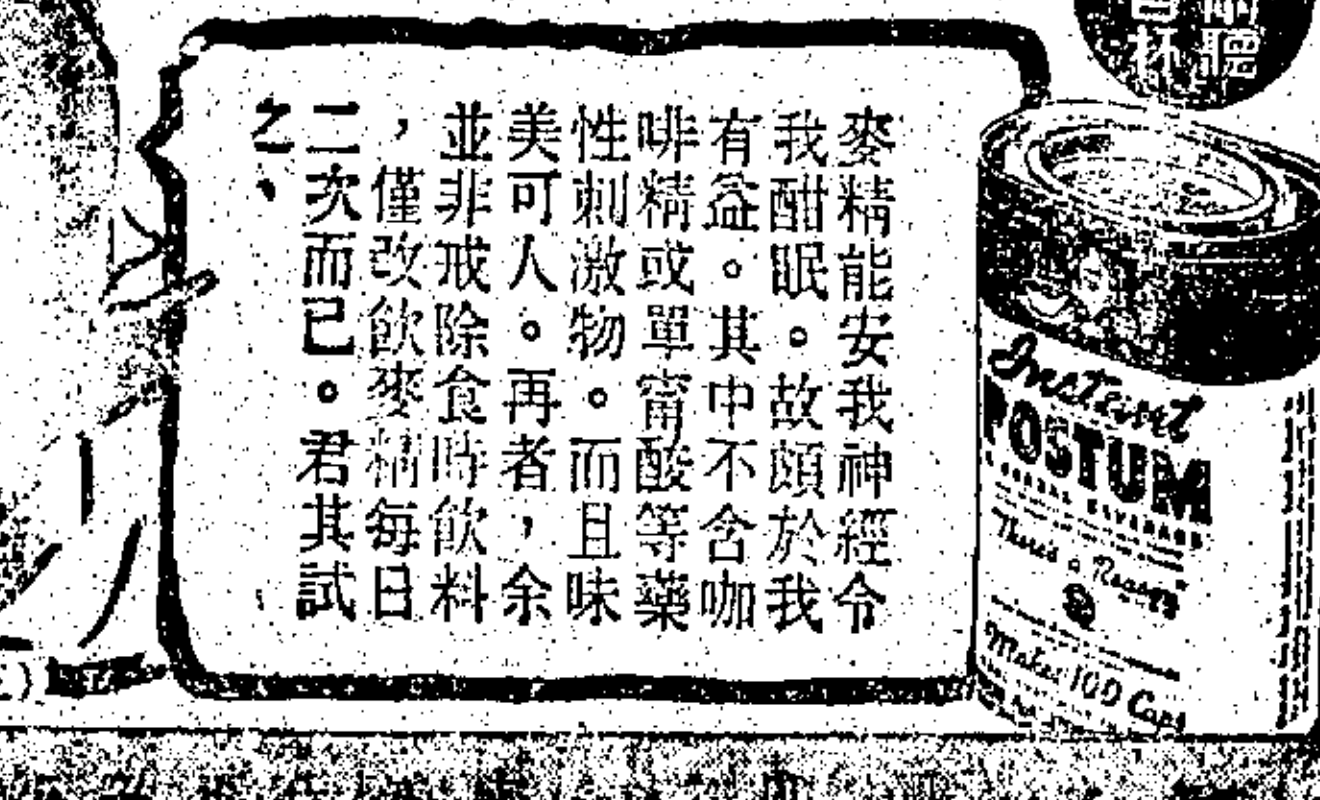 麥精能安我神經令
我酣眠。故頗於我
有益。其中不含咖
啡精或單甯酸等藥
性刺激物。而且味
美可人。再者，余
並非戒除食時飲料
，僅改飲麥精每日
二次而已。君其試
之、
聽
杯
Instant
POSTUM
A CEREAL BEVERAGE
There's a Reason
Makes 100 Cups